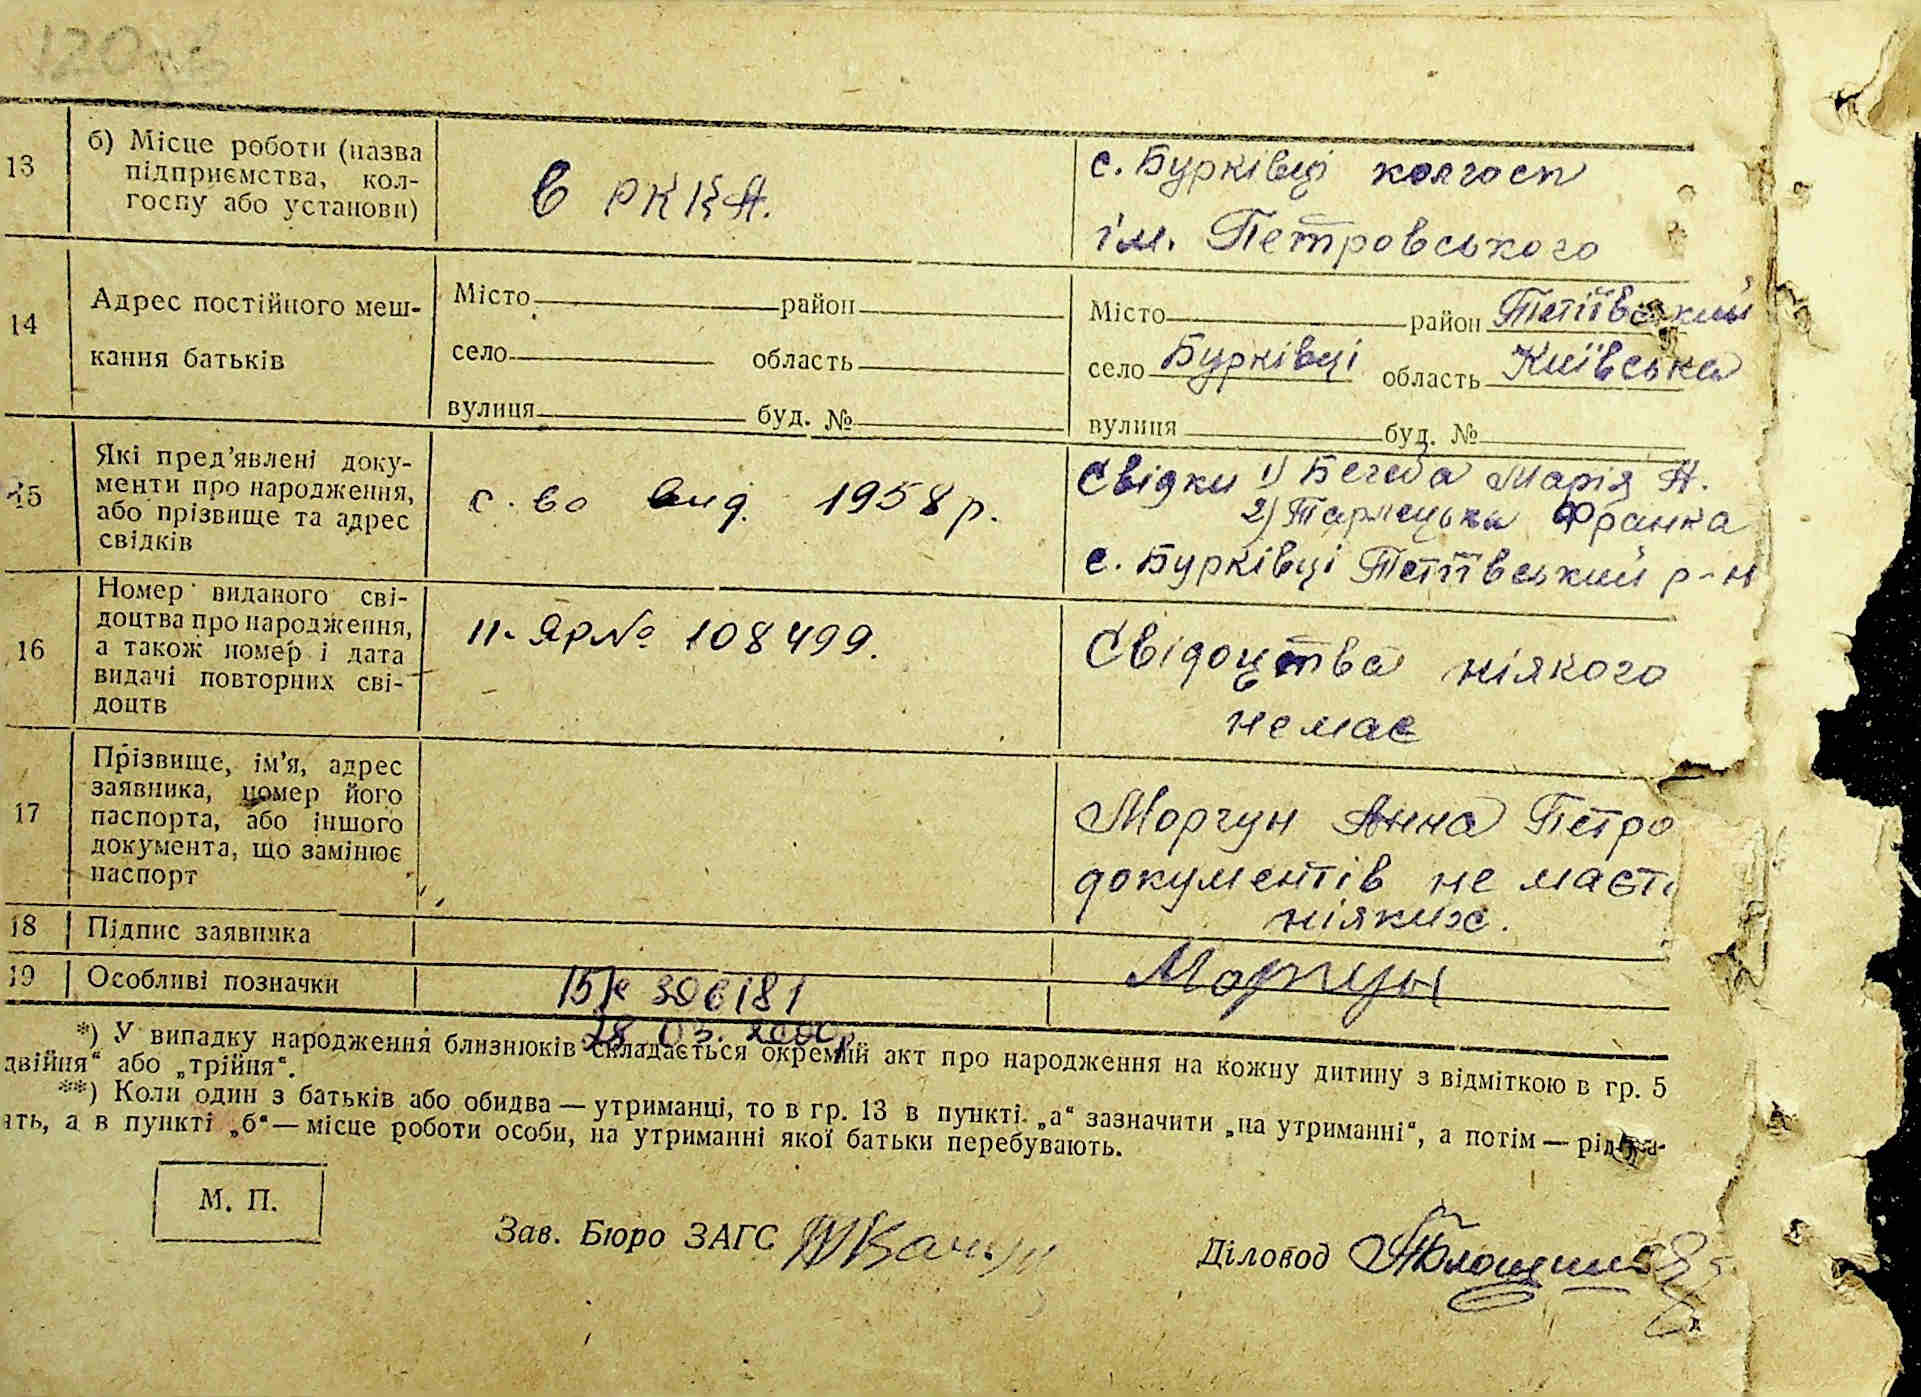 13
б) Місце роботи (назва
підприємства, кол-
госпу або установи)
в РКЦА.
с. Бурківці колгосп
ім. Петровського
14
Адрес постійного меш-
кання батьків
Місто район
село область
вулиця буд. №
Місто район Тетіївський
село Бурківці область Київська
вулиця буд. №
15
Які пред'явлені доку-
менти про народження,
або прізвище та адрес
свідків
с. во вид. 1958 р.
Свідки 1) Бегеба Марія А.
2) Тармецька Франка
с. Бурківці Тетіївський р-н
16
Номер виданого сві-
доцтва про народження,
а також номер і дата
видачі повторних сві-
доцтв
II-ЯР № 108499.
Свідоцтва ніякого
немає
17
Прізвище, ім'я, адрес
заявника, номер його
паспорта, або іншого
документа, що замінює
паспорт
Моргун Анна Петро
документів не маєть
ніяких.
18
Підпис заявника
Моргун
19
Особливі позначки
306181
28.03.2000р
*) У випадку народження близнюків складається окремий акт про народження на кожну дитину з відміткою в гр. 5
двійня“ або „трійня“.
**) Коли один з батьків або обидва — утриманці, то в гр. 13 в пункті „а“ зазначити „на утриманні“, а потім — рід
ять, а в пункті „б“ — місце роботи особи, на утриманні якої батьки перебувають.
М. П.
Зав. Бюро ЗАГС
Діловод